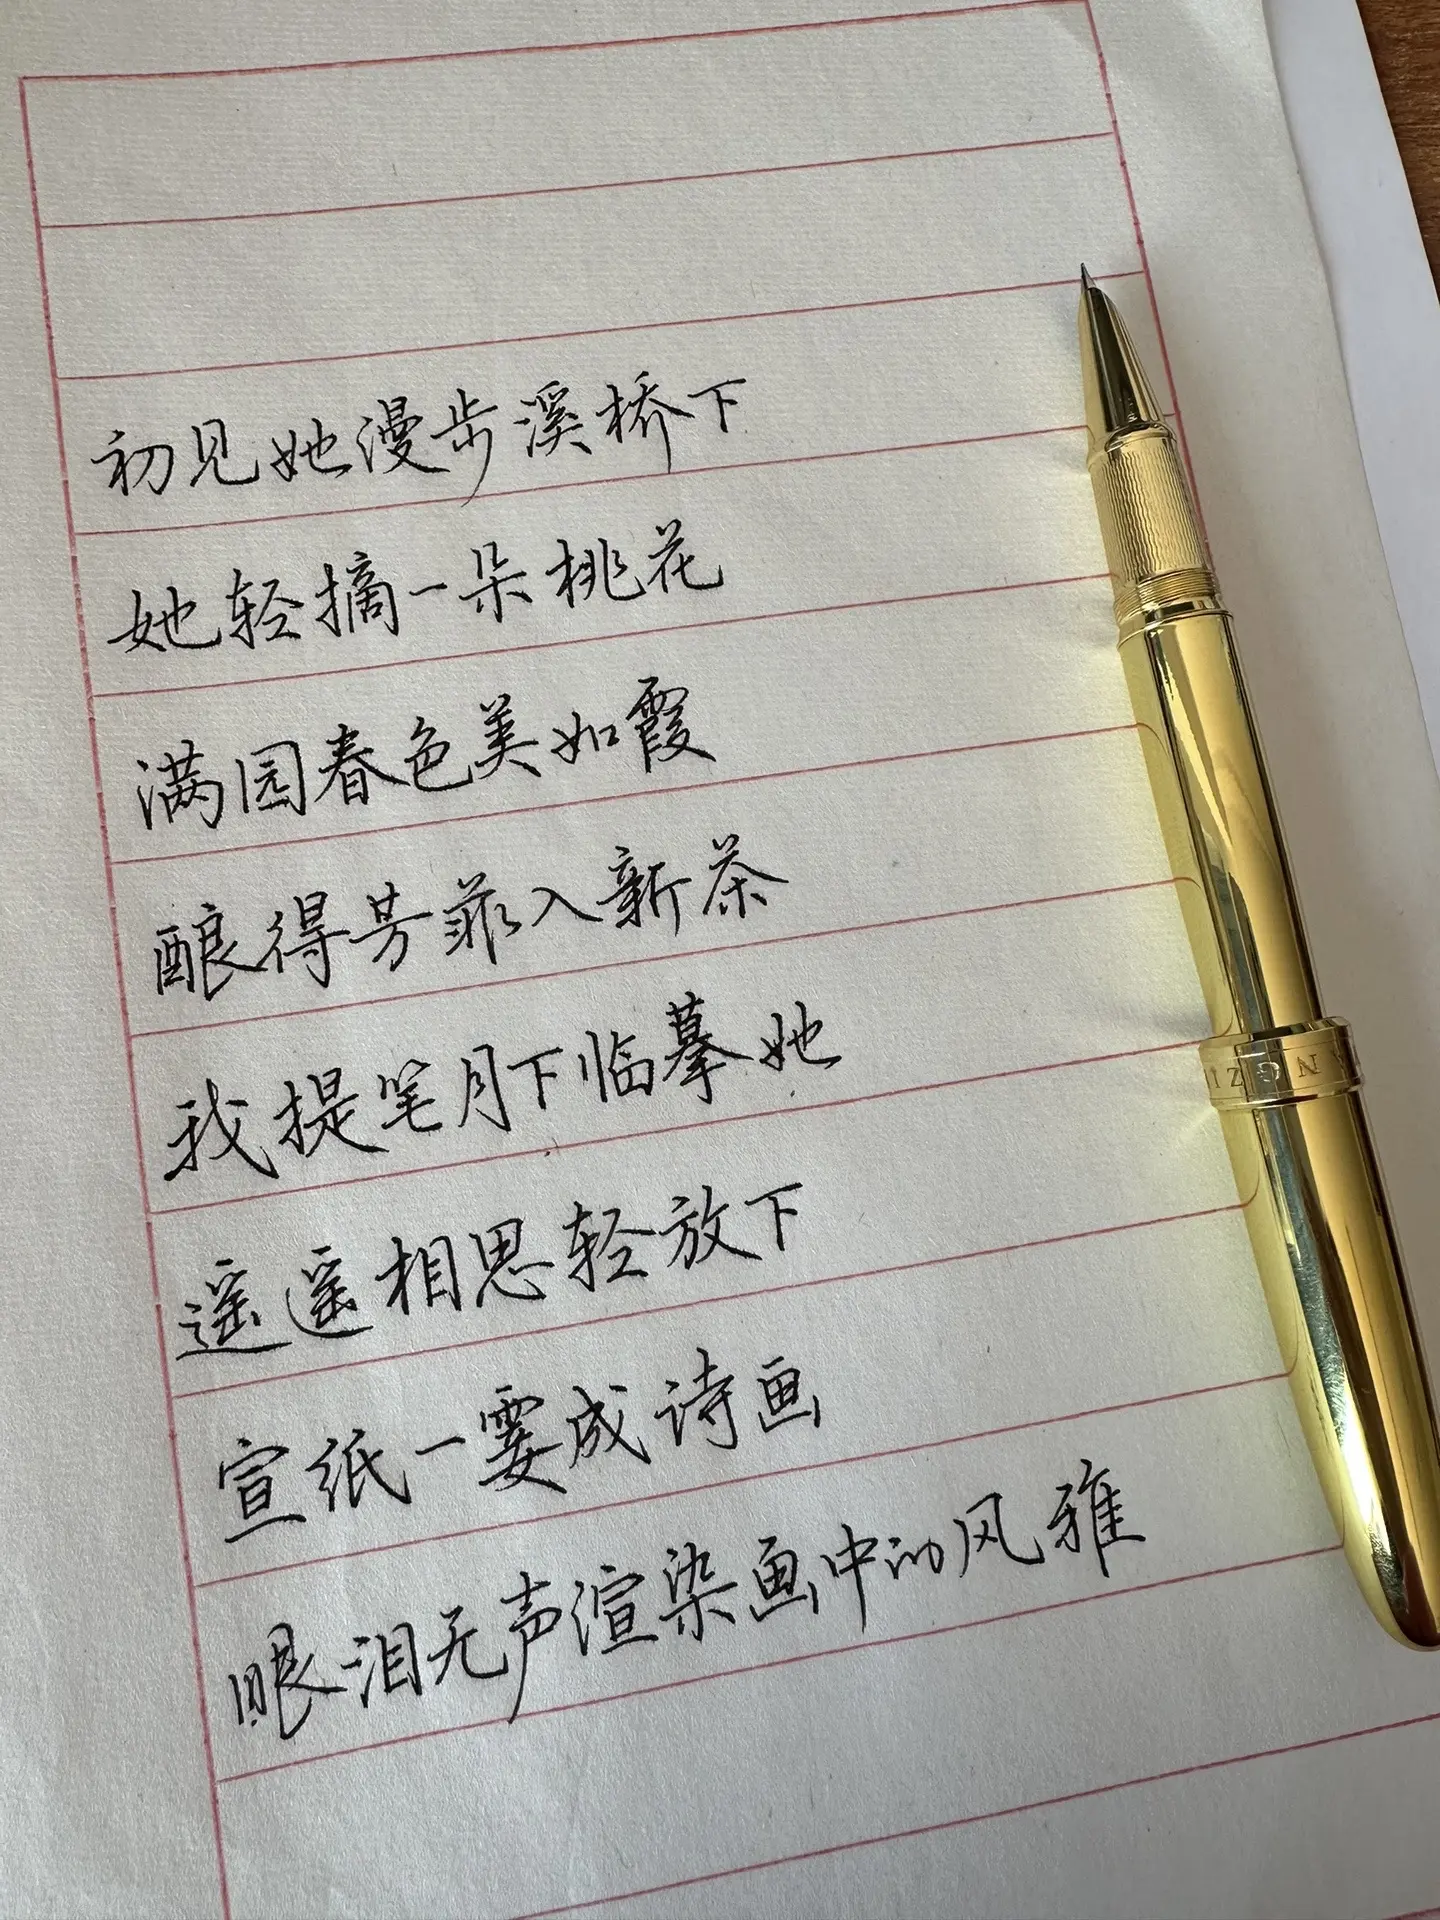 初见她漫步溪桥下
她轻摘一朵桃花
满园春色美如霞
酿得芳菲入新茶
我提笔月下临摹她
遥遥相思轻放下
宣纸一霎成诗画
眼泪无声渲染画中的风雅